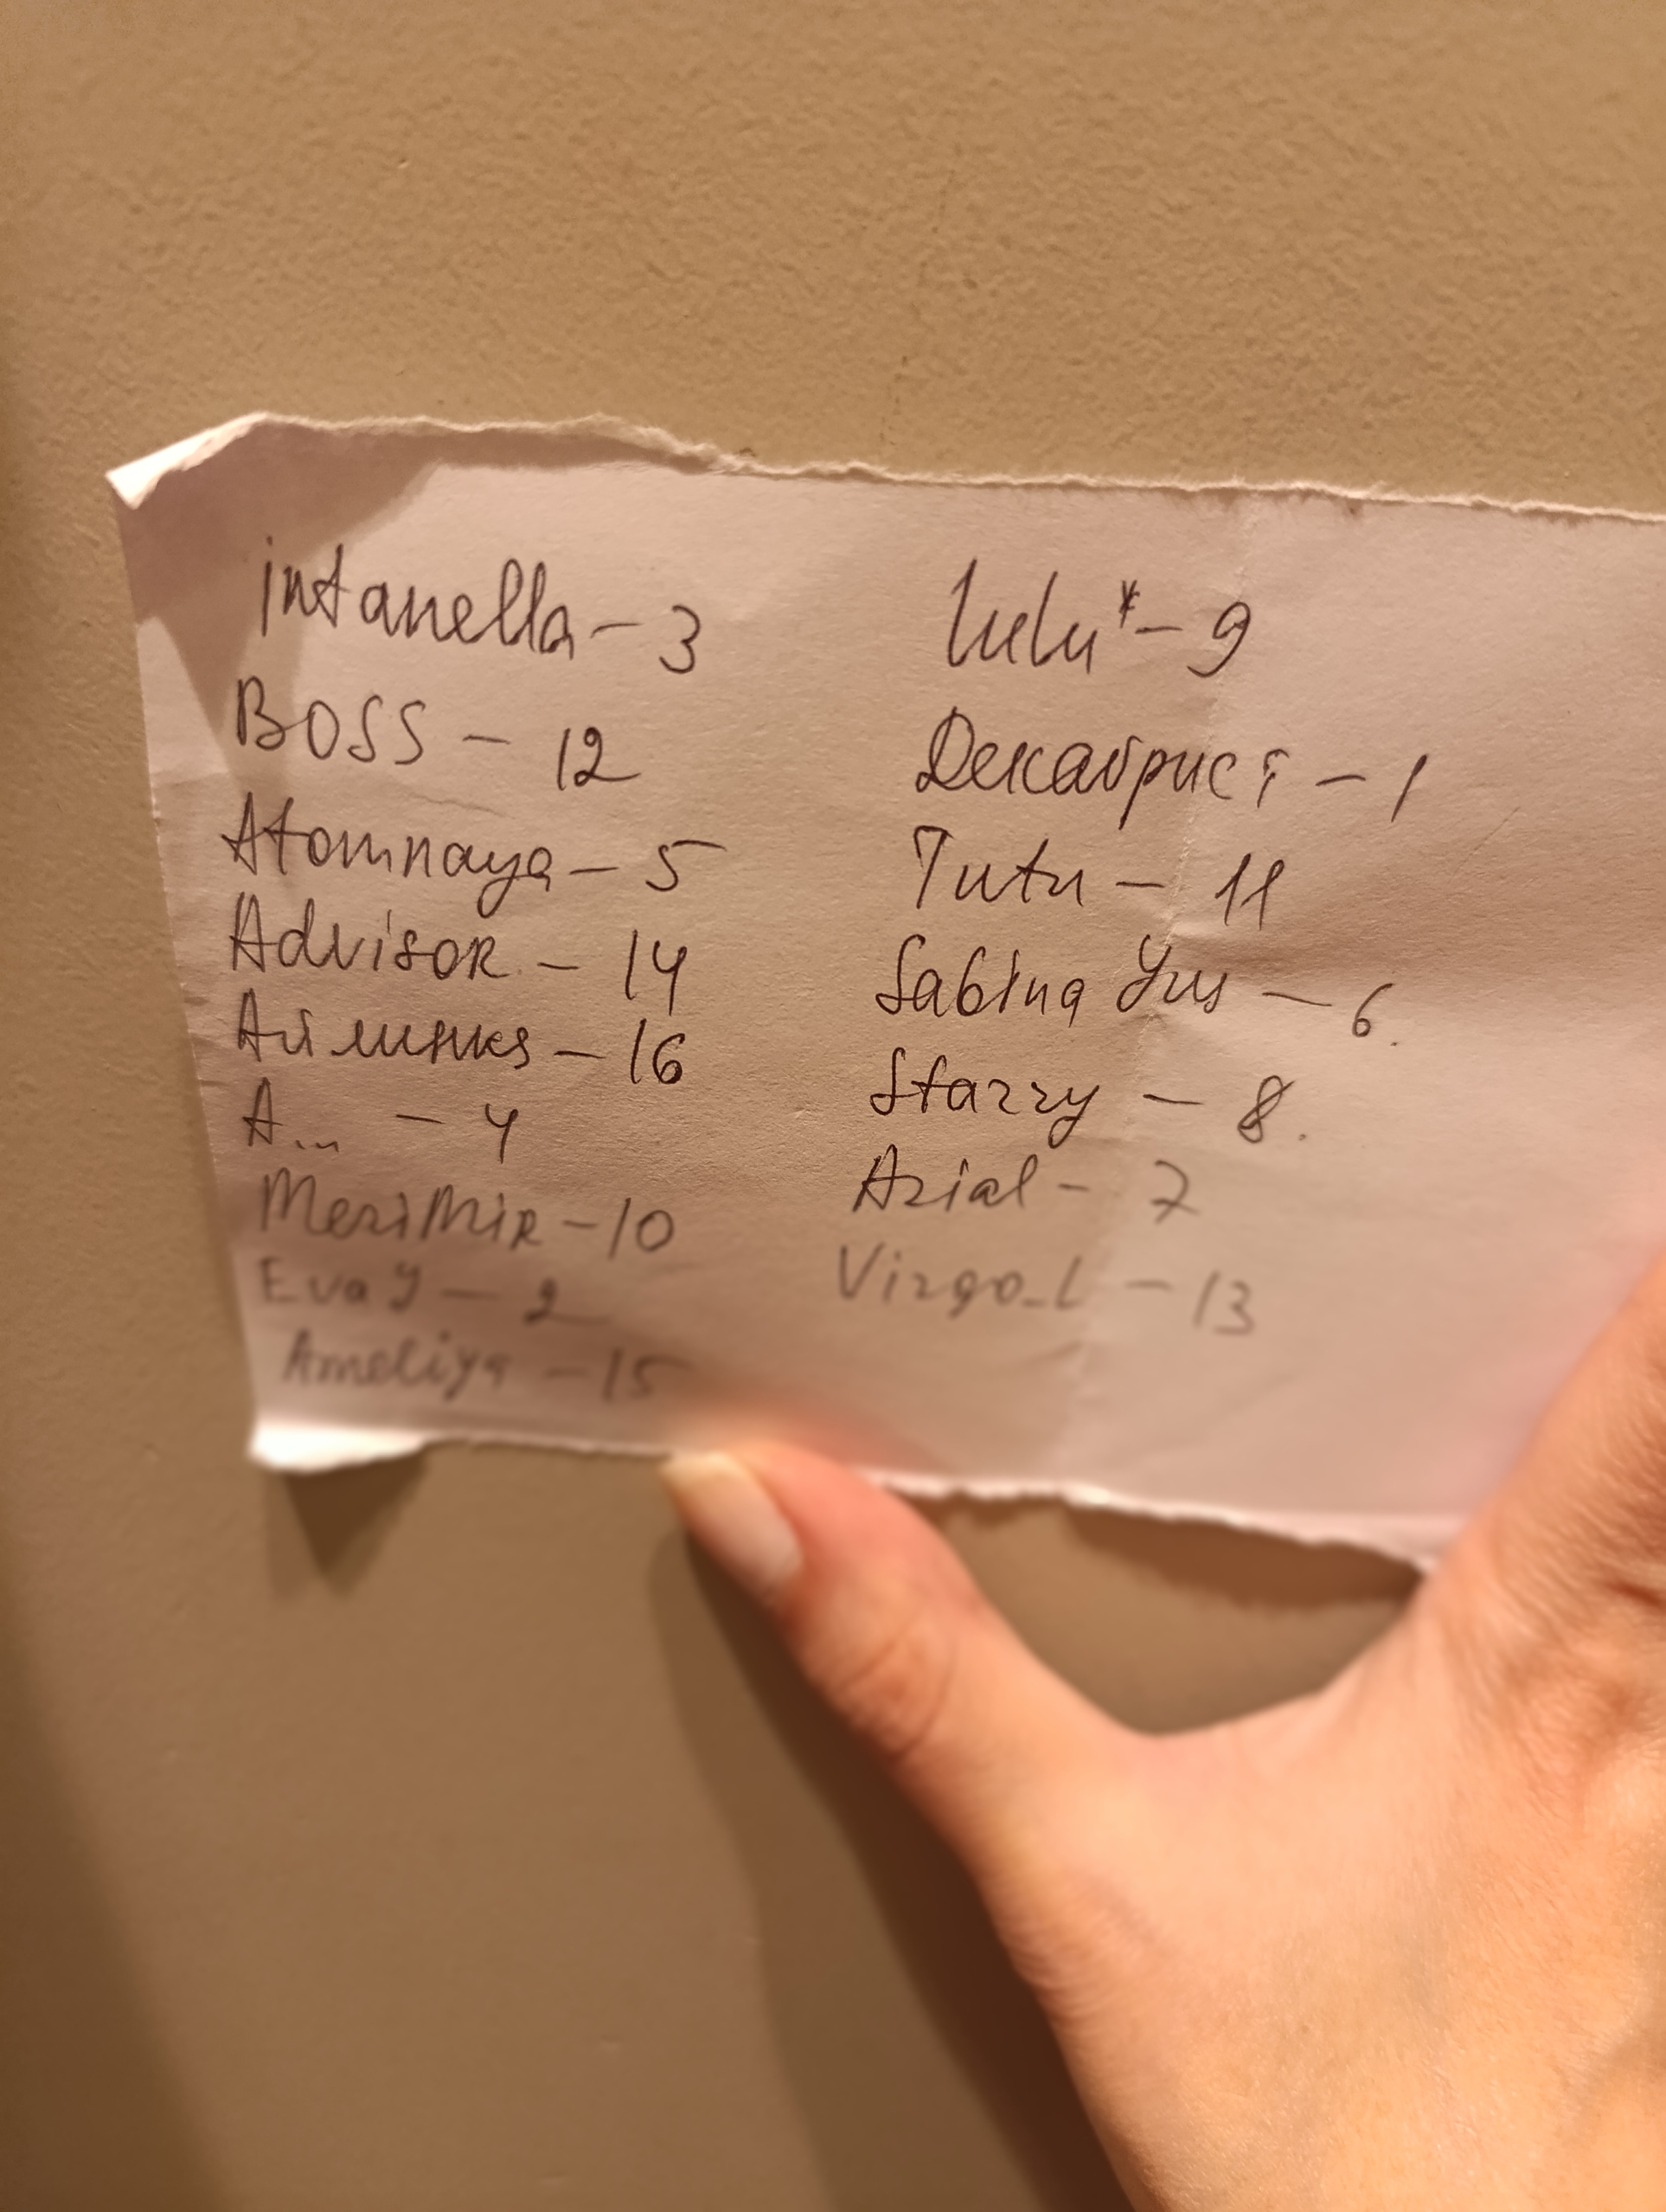 intanella - 3
BOSS - 12
Atomnaya - 5
Advisor - 14
Айлинка - 16
A... - 4
MeriMir - 10
Eva Y - 2
Ameliya - 15
lulu* - 9
Декабрист - 1
Tutu - 11
Sabina Yus - 6.
Starry - 8.
Arial - 7
Virgo_L - 13